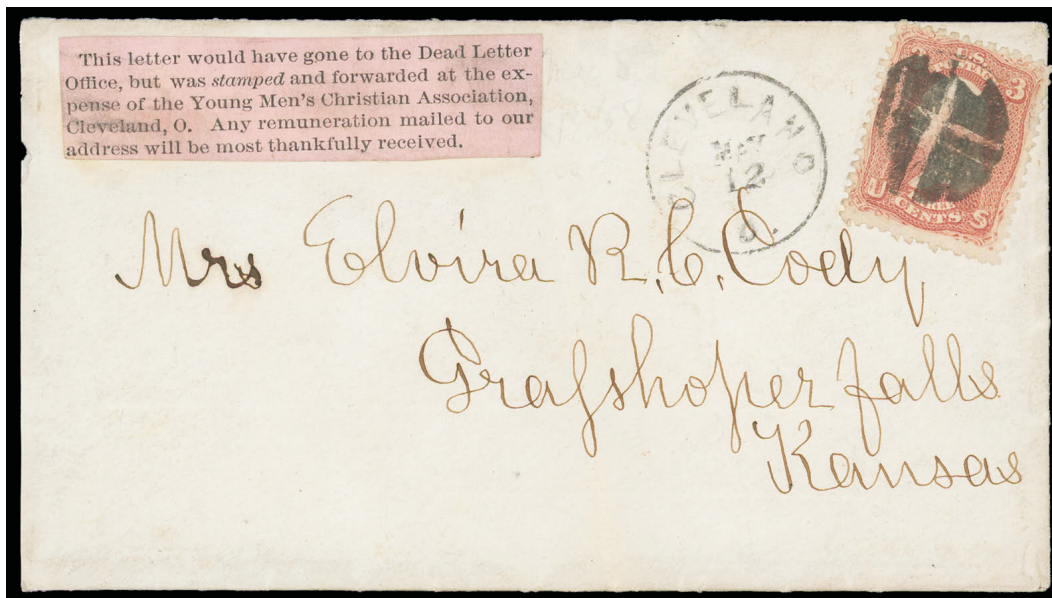 This letter would have gone to the Dead Letter
Office, but was stamped and forwarded at the ex-
pense of the Young Men's Christian Association,
Cleveland, O. Any remuneration mailed to our
address will be most thankfully received.
CLEVELAND O
MAY
12
3
U S
THREE
CENTS
Mrs Elvira R. C. Cody
Grasshoper falls
Kansas